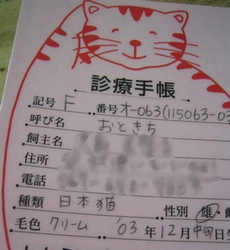 診療手帳
記号 F 番号オ-063(115063-03
呼び名 おときち
飼主名
住所
電話
種類 日本猫 性別 雄・雌
毛色 クリーム '03年12月中旬日生